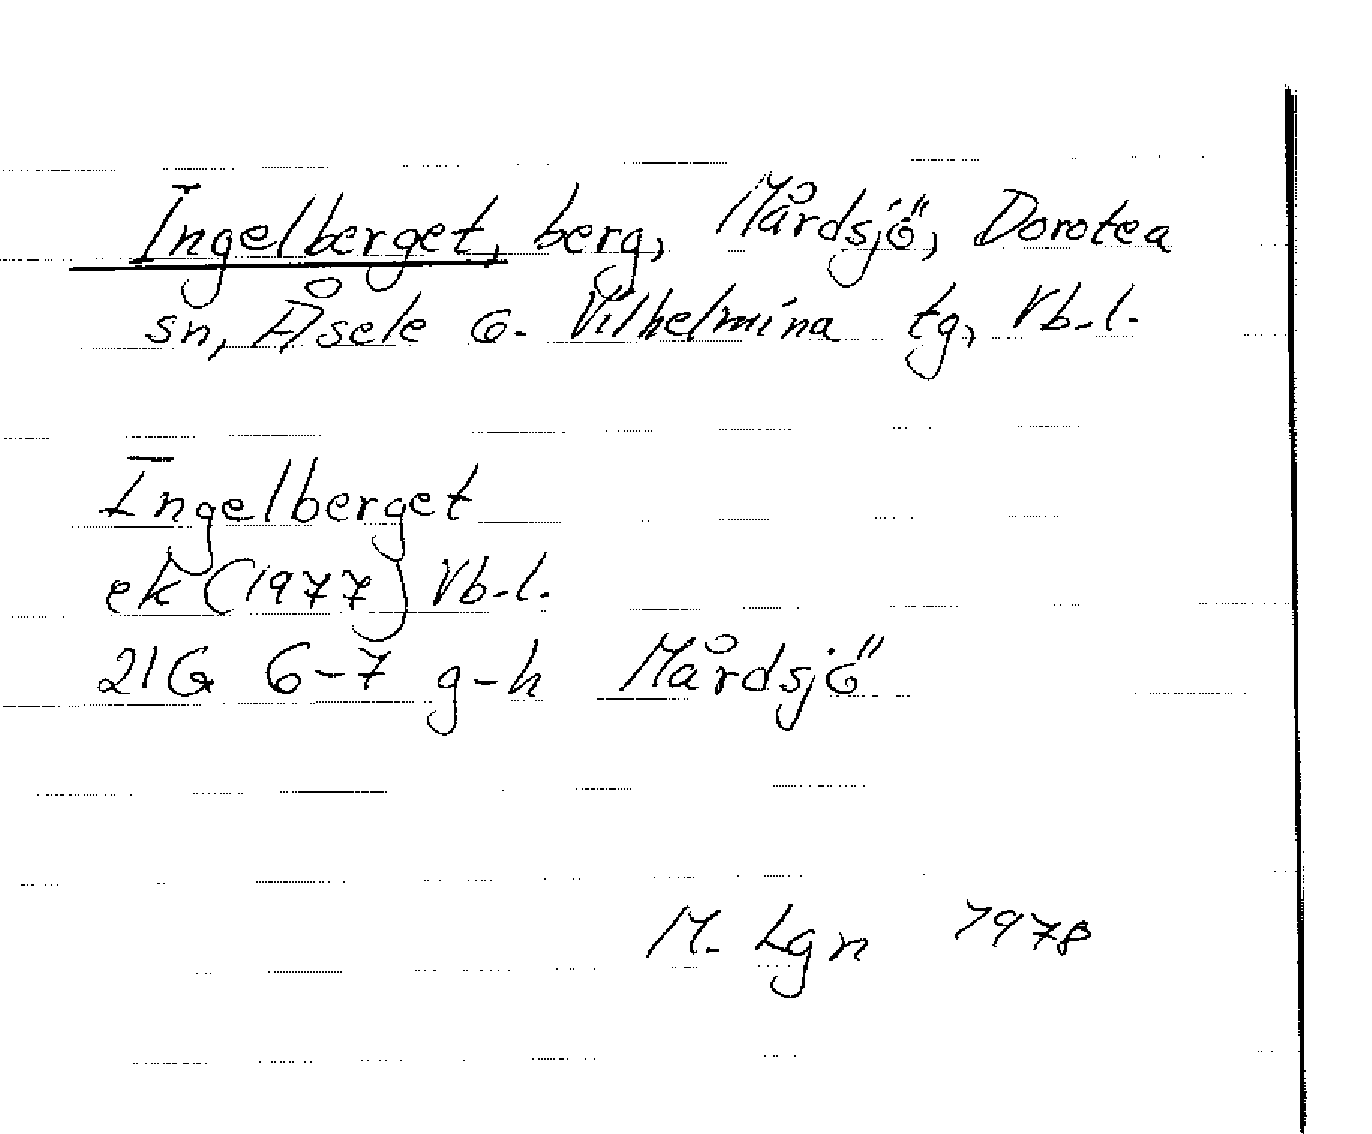 Ingelberget, berg, Mårdsjö, Dorotea
sn, Åsele o. Vilhelmina tg, Vb-l.
Ingelberget
ek (1977) Vb-l.
21G 6-7 g-h Mårdsjö
M. Lgn 1978